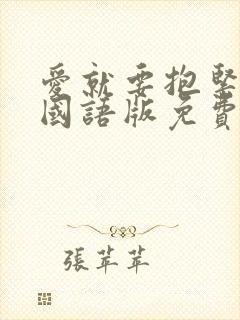 愛就要抱緊
國語版免費
張苹苹